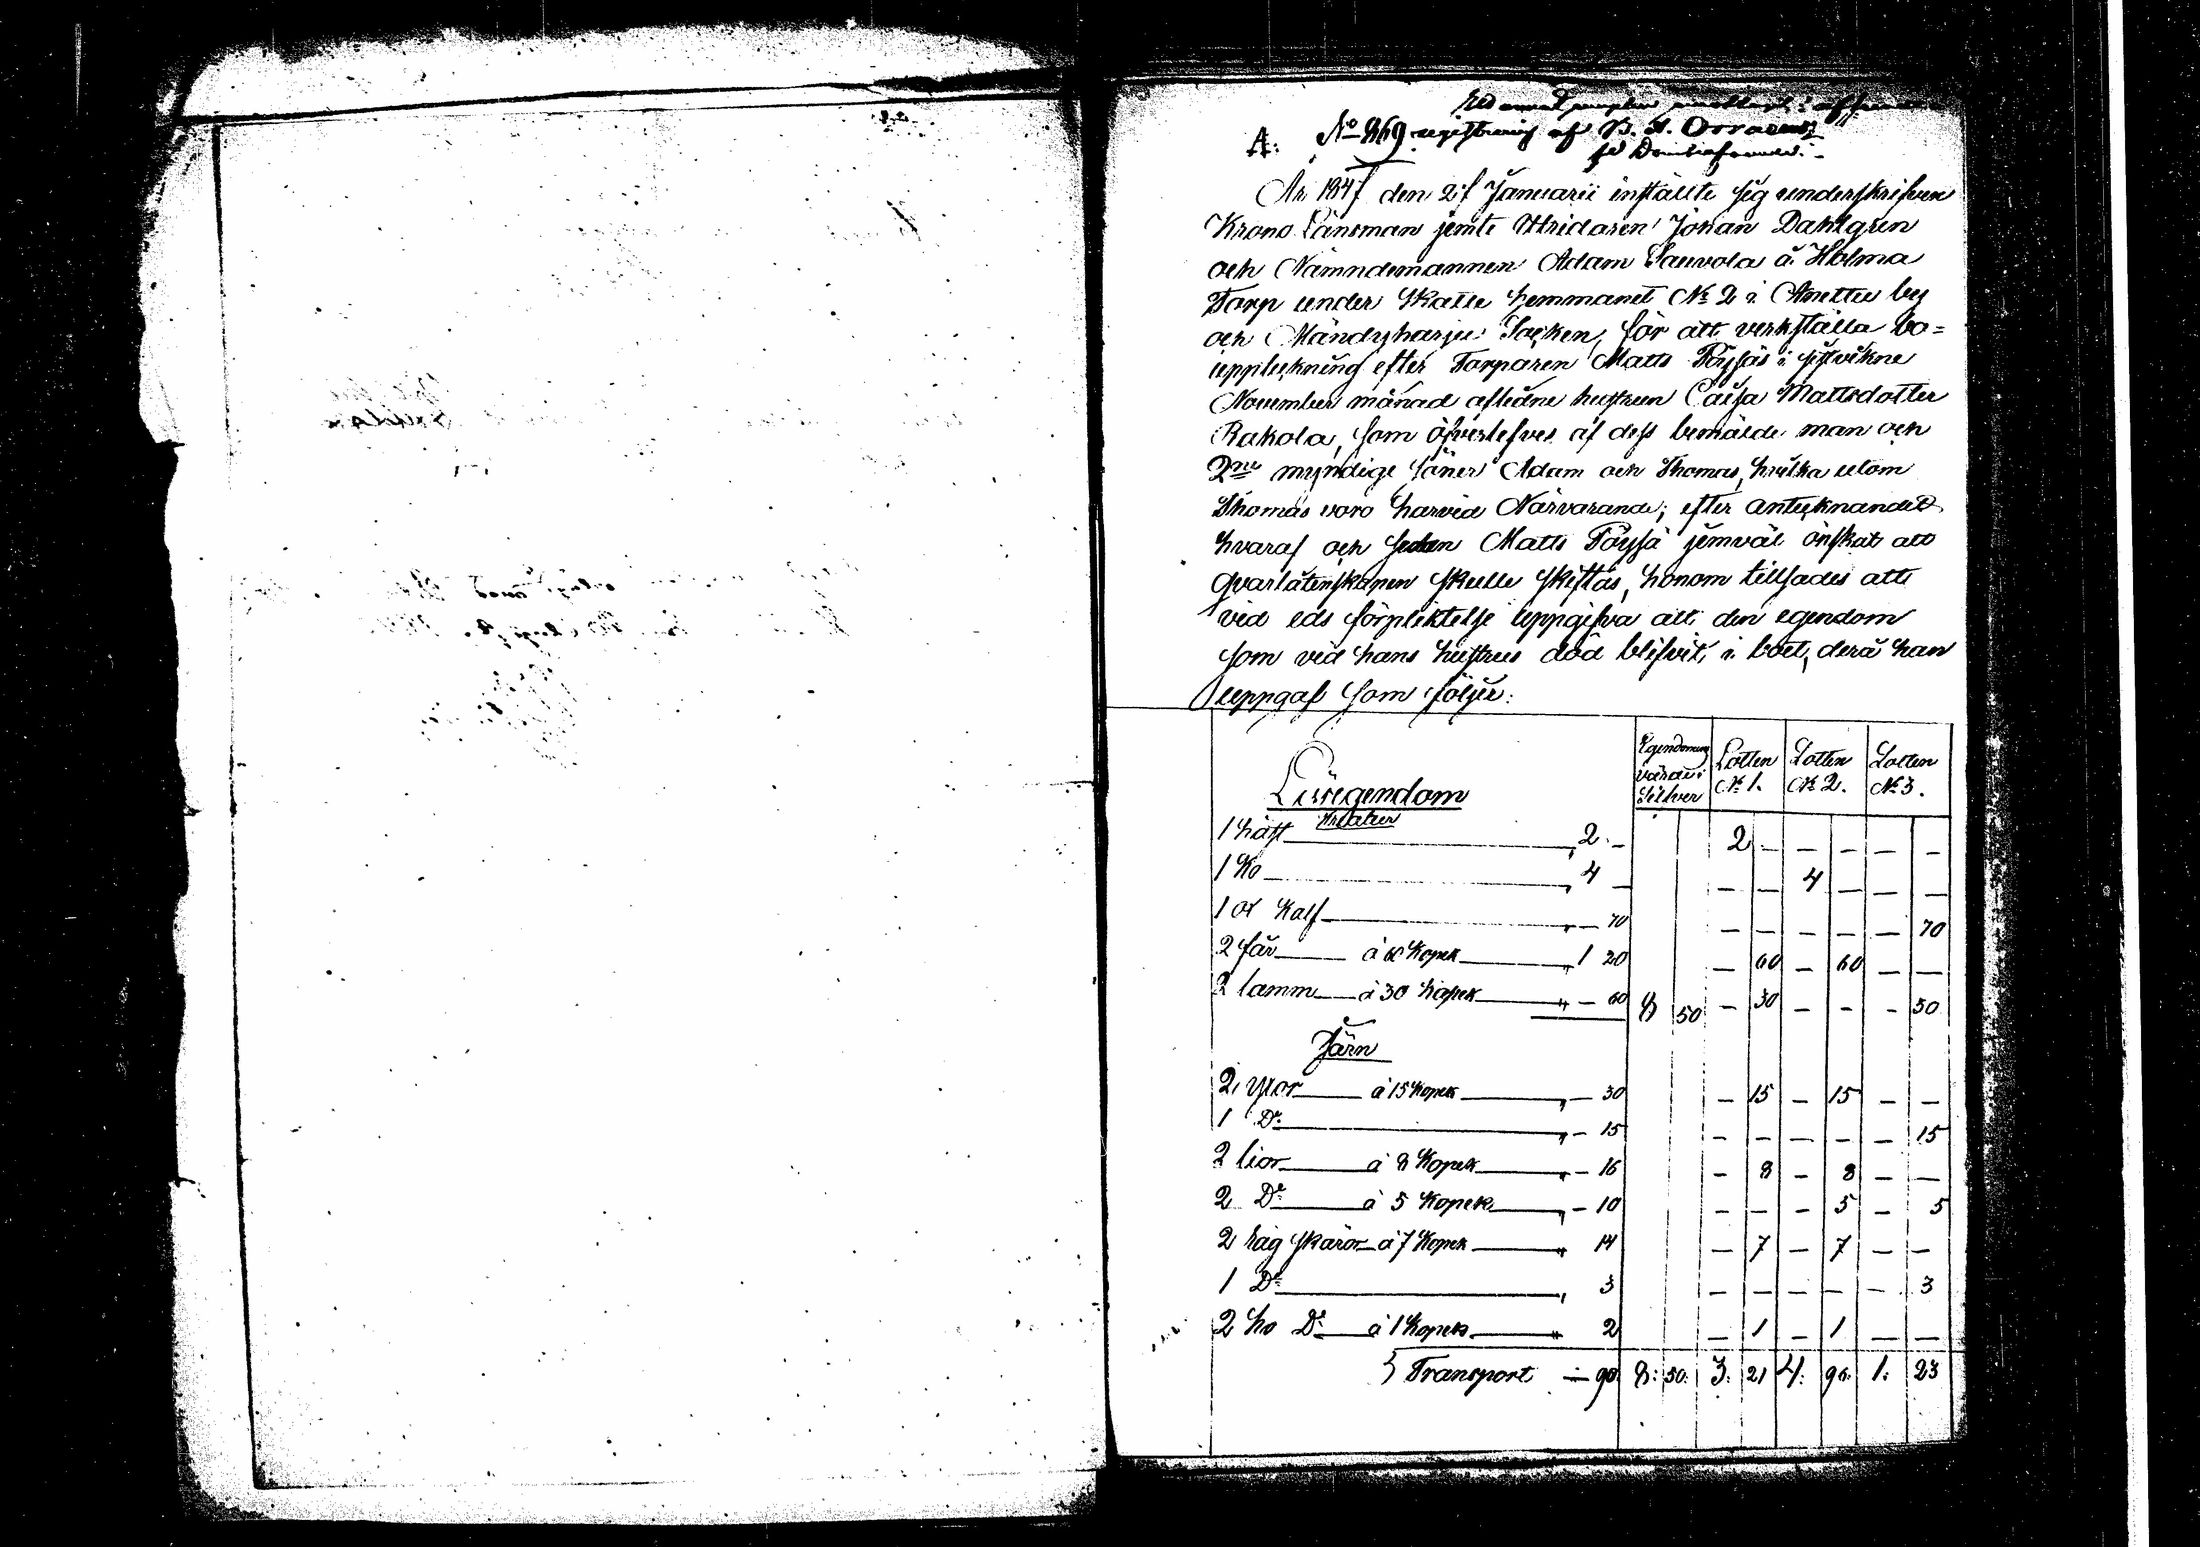 A: No 869 registrering af
År 1847 den 2 Januarii instälte sig underskrifven
Krono Länsman jemte Utridaren Johan Dahlgren
och Nämndemannen Adam Sauvola å Holma
Torp under Skatte hemmanet No 2 i Anettu by
och Mändyharju Socken, för att verkställa bo=
uppteckning efter Torparen Matts Töysäs i sistvekne
November månad aflidne hustrun Caisa Mattsdotter
Rakola, som öfverlefves af dess bemälde man och
2ne myndige söner Adam och Thomas, hvilka utom
Thomas voro härvid Närvarande; efter antecknandet
hvaraf och sedan Matts Töysä jemväl önskat att
qvarlåtenskapen skulle skiftas, honom tillsades att
vid eds förpliktelse uppgifva all den egendom
som vid hans hustrus död blifvit i boet, derå han
uppgaf som följer:
Lösegendom
Egendomens värde i Silfver
Lotten No 1.
Lotten No 2.
Lotten No 3.
Kreatur
1 häst 2 — 2 — — — — —
1 Ko " 4 — — — 4 — — —
1 ox Kalf " — 70 — — — — — 70
2 får à 60 Kopek " 1 20 — 60 — 60 — —
2 lamm à 30 Kopek " — 60 8 50 — 30 — — — 30
Järn
2 yxor à 15 Kopek " — 30 — 15 — 15 — —
1 Do " — 15 — — — — — 15
2 lior à 8 Kopek " — 16 — 8 — 8 — —
2 Do à 5 Kopek " — 10 — — — 5 — 5
2 råg skäror à 7 Kopek " 14 — 7 — 7 — —
1 Do " 3 — — — — — 3
2 hö Do à 1 Kopek " 2 — 1 — 1 — —
Transport — 90 8: 50: 3: 21 4: 96: 1: 23